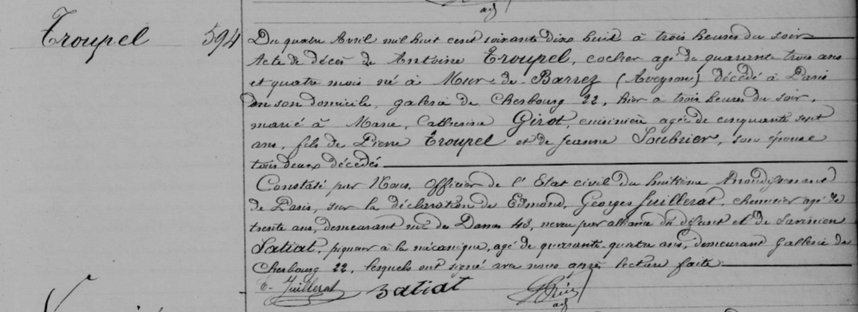 Troupel 594
Du quatre Avril mil huit cent soixante dix huit à trois heures du soir
Acte de décès de Antoine Troupel, cocher agé de quarante trois ans
et quatre mois né à Mur-de-Barrez (Aveyron) décédé à Paris
en son domicile, galerie de Cherbourg 22, hier à trois heures du soir,
marié à Marie, Catherine Girot, cuisinière agée de cinquante sept
ans, fils de Pierre Troupel et de Jeanne Soubrier, son épouse
tous deux décédés
Constaté par Nous, Officier de l'Etat civil du huitième Arrondissement
de Paris, sur la déclaration de Edmond, Georges Juillerat, chemisier agé de
trente ans, demeurant rue des Dames 43, neveu par alliance du défunt et de
Satiat, piqueur à la mécanique, agé de quarante quatre ans, demeurant Gallerie de
Cherbourg 22, lesquels ont signé avec nous après lecture faite
E. Juillerat Satiat